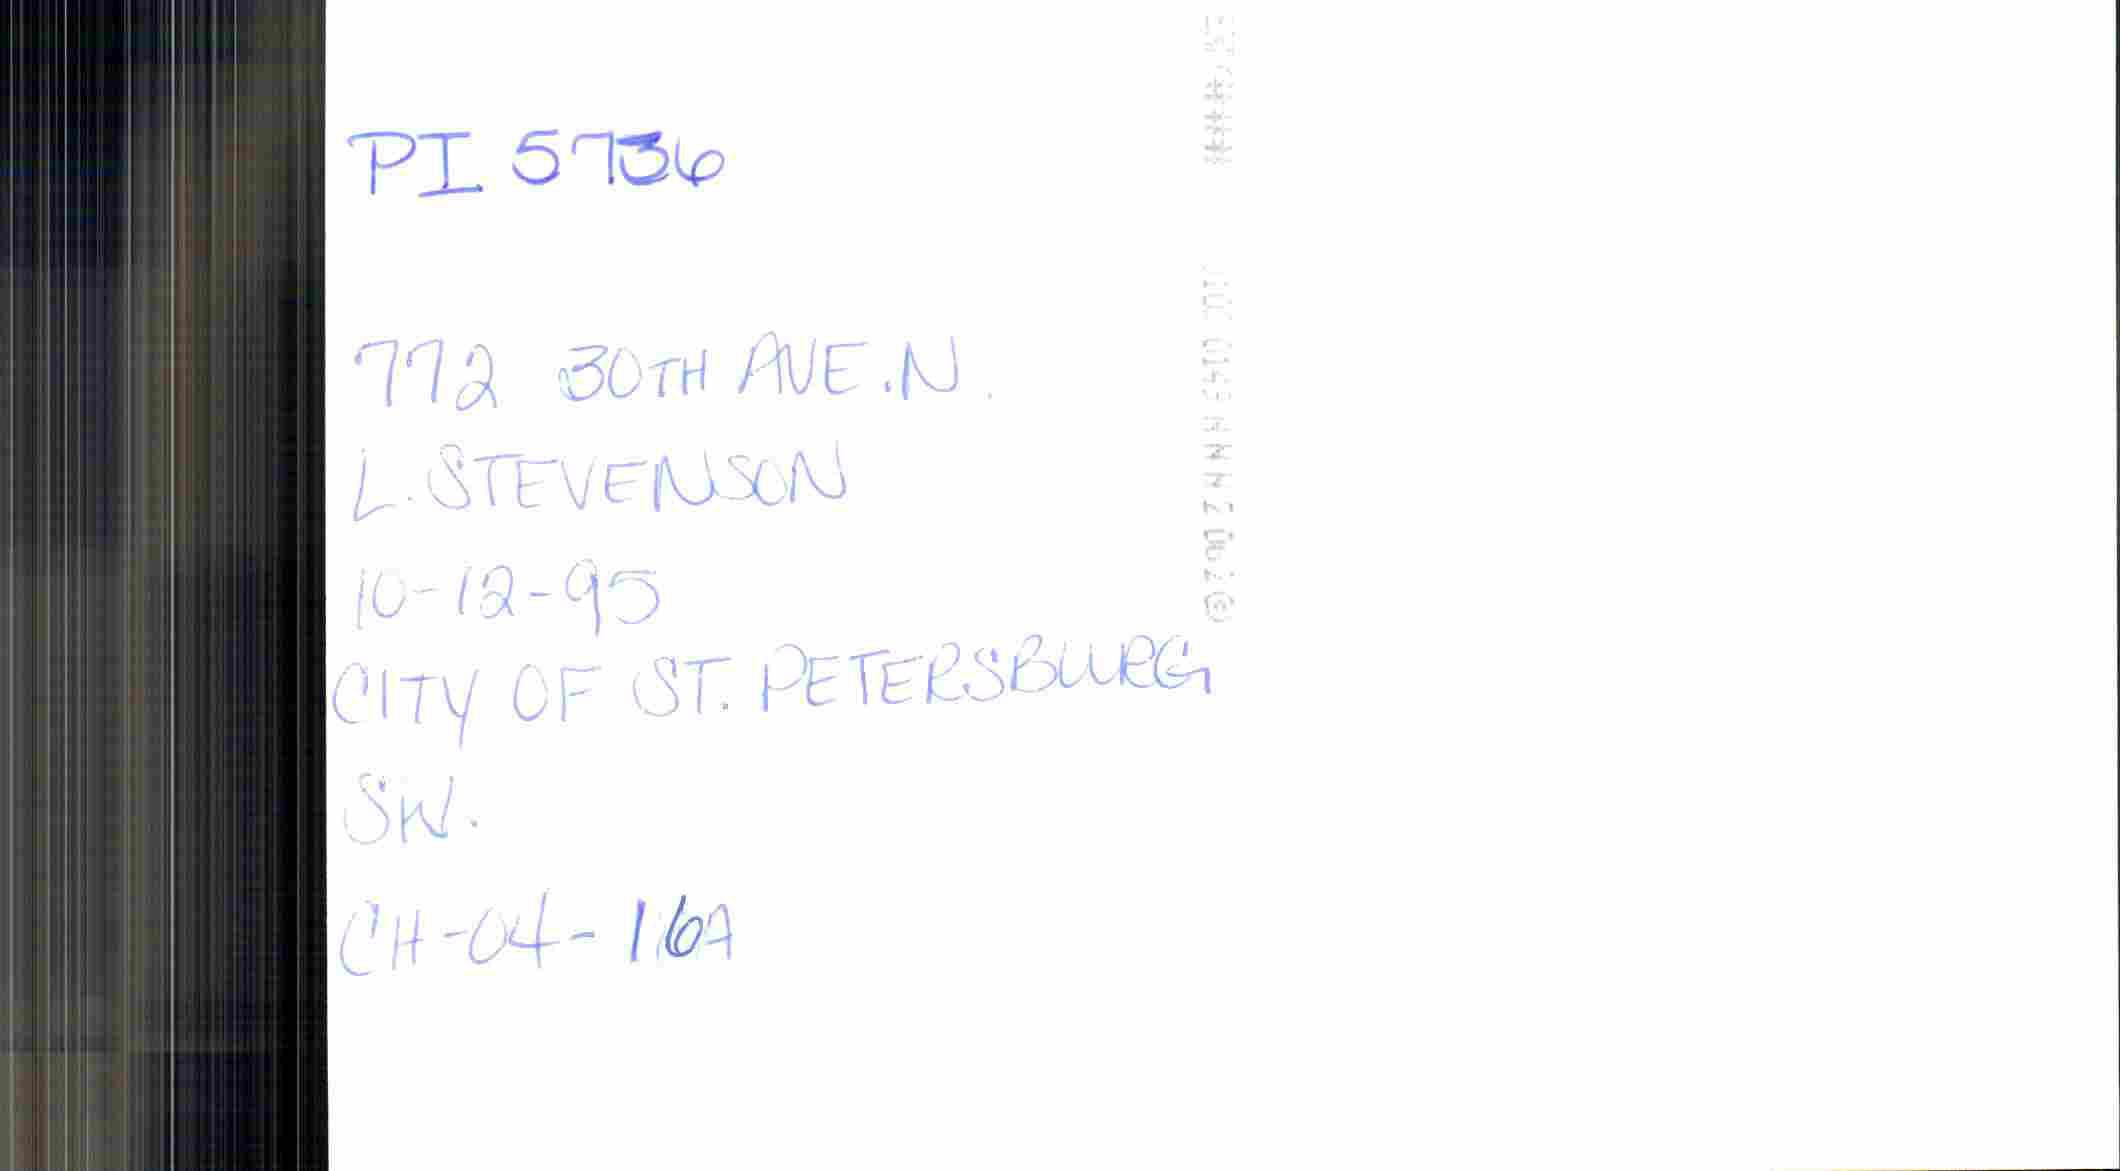 PI 5736
772 30TH AVE. N.
L. STEVENSON
10-12-95
CITY OF ST. PETERSBURG
SW.
CH-04-16A